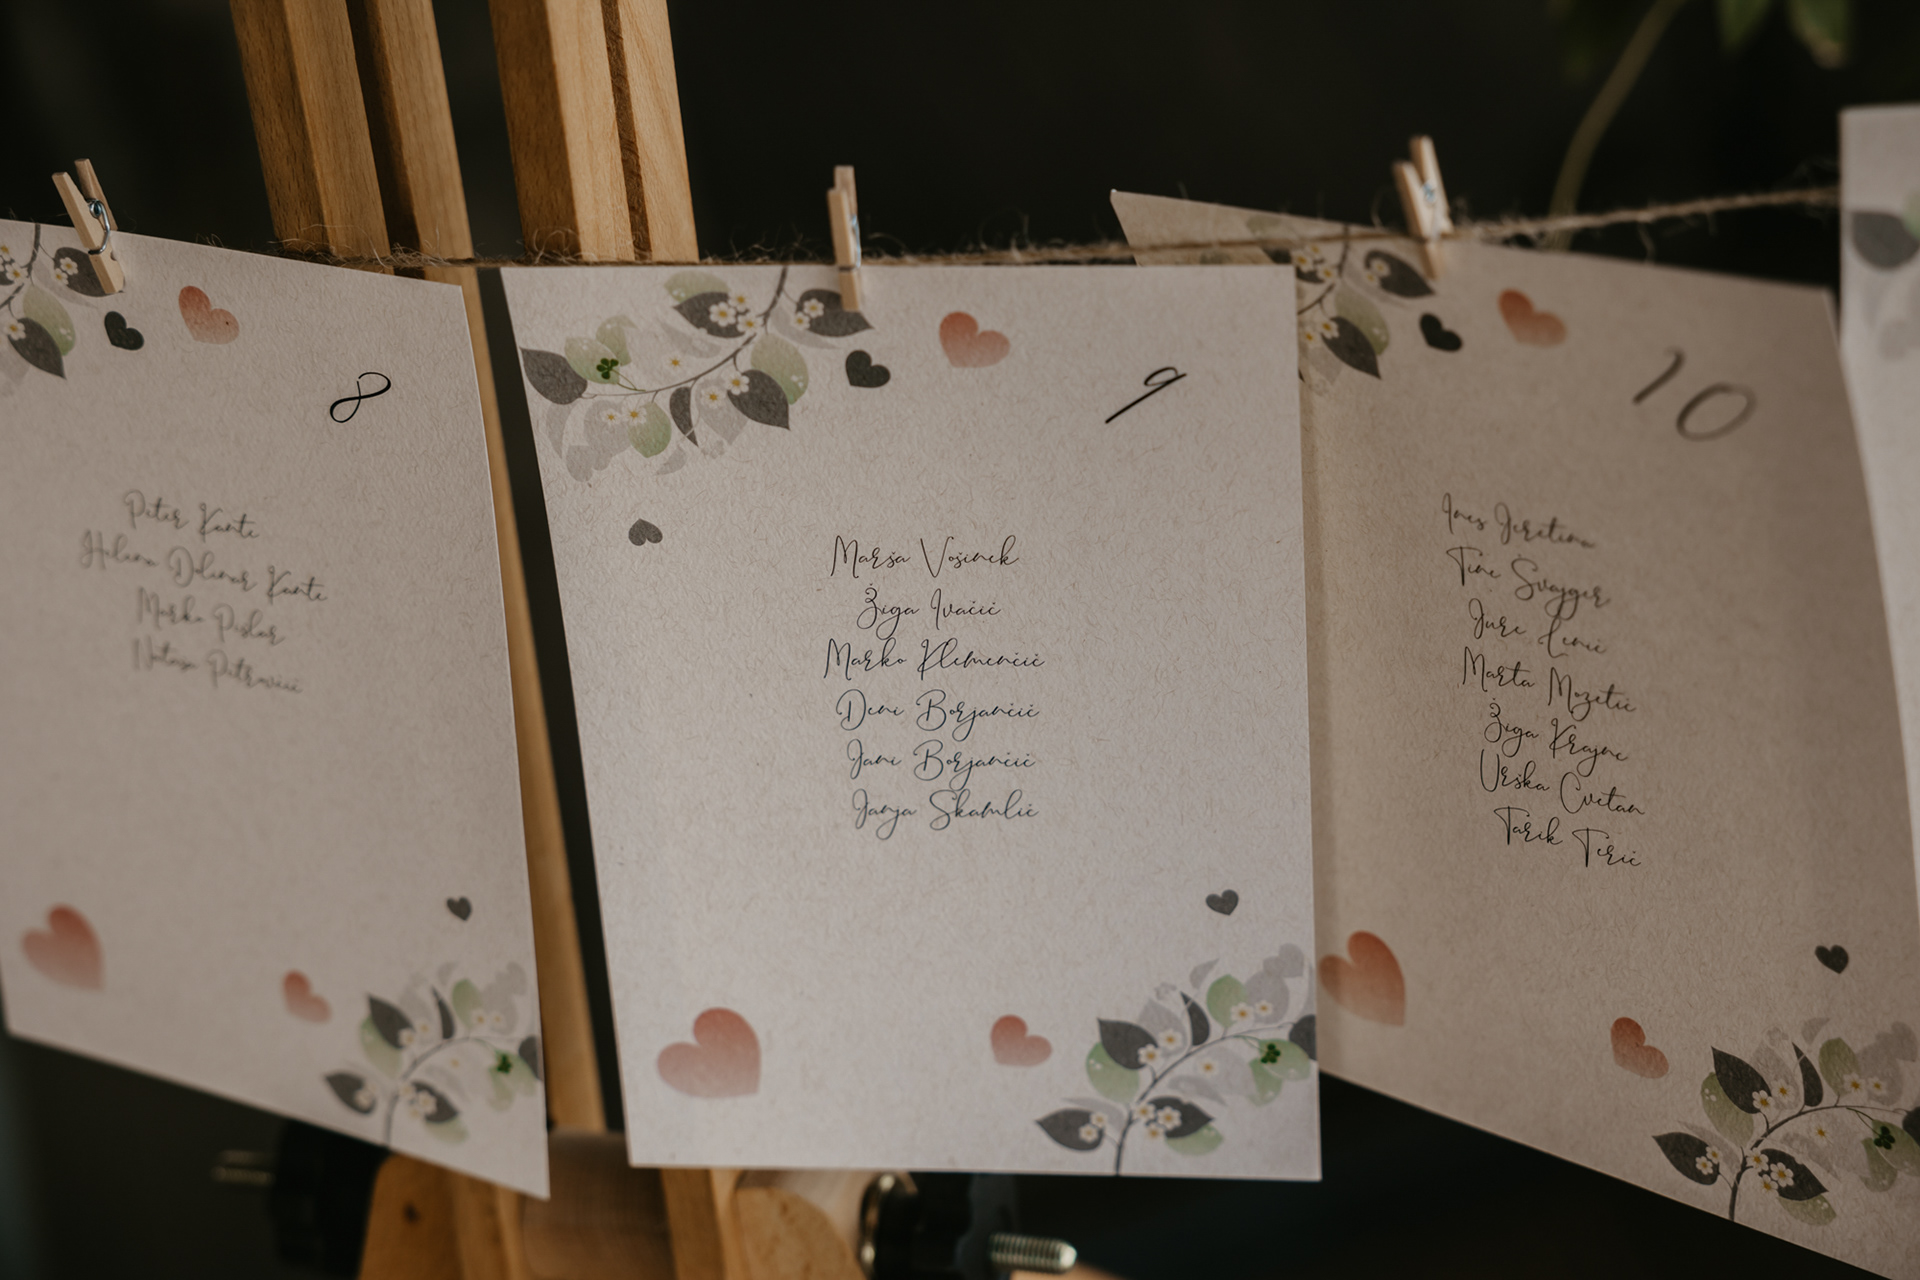 8
Peter Kante
Helena Dolenar Kante
Marko Pislar
Nataša Petrovčič
9
Marša Vošinek
Žiga Ivačič
Marko Klemenčič
Deni Borjančič
Jani Borjančič
Janja Skamlič
10
Ines Jeretina
Tine Švajger
Jure Lenič
Marta Mozetič
Žiga Krajnc
Urška Cvetan
Tarik Terić